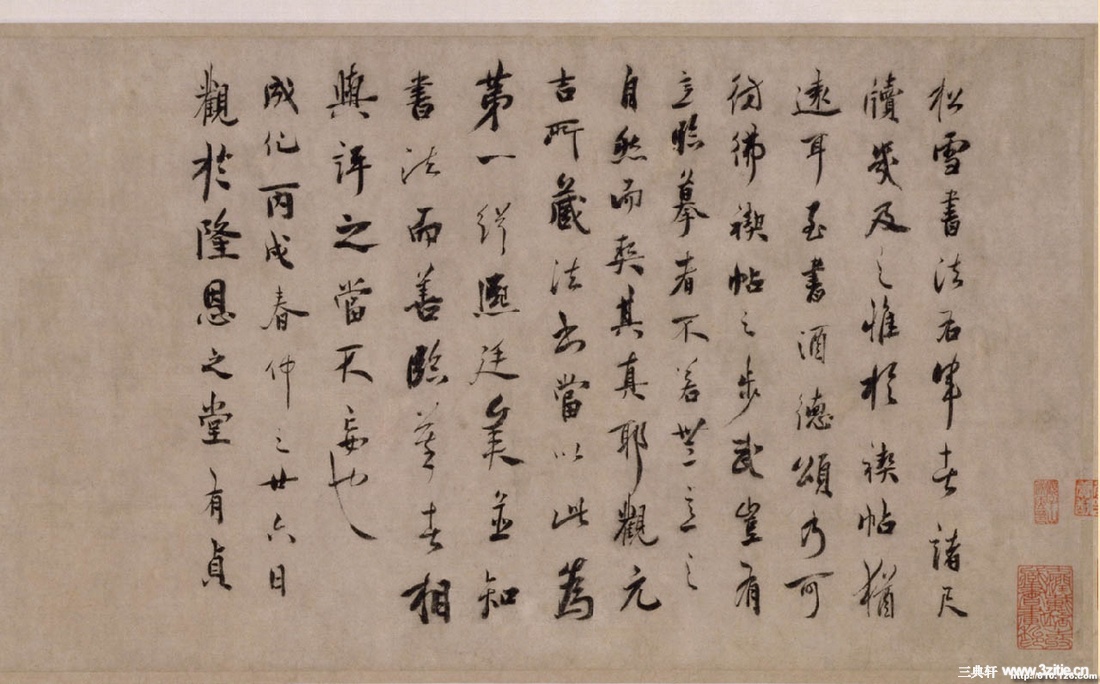 松雪書法右軍者諸尺
牘幾及之惟於禊帖猶
遠耳至書酒德頌乃可
彷彿禊帖之步武豈有
意臨摹者不若無意之
自然而契其真耶觀元
吉所藏法書當以此為
第一
廷美並知
書法而善臨
者相
與評之當不妄也
成化丙戌春仲之廿六日
觀於隆恩之堂有貞
三典轩 www.3zitie.cn